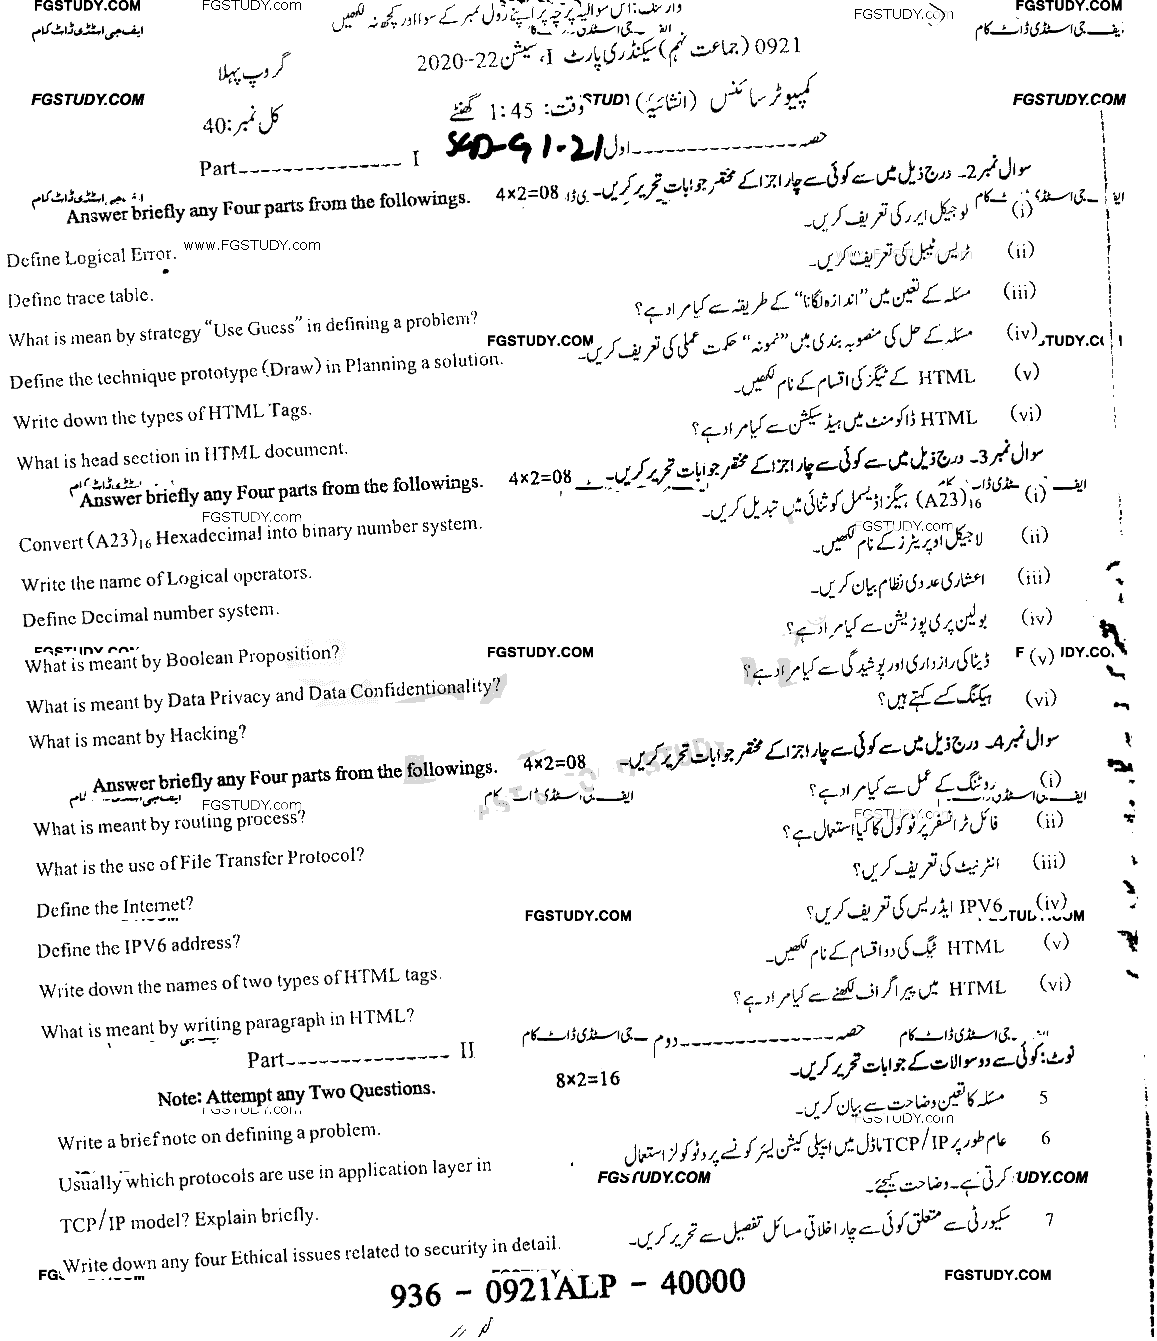 FGSTUDY.COM FGSTUDY.com وارننگ: اس سوالیہ پرچہ پر اپنے رول نمبر کے سوا اور کچھ نہ لکھیں FGSTUDY.com FGSTUDY.COM
ایف جی اسٹڈی ڈاٹ کام
0921 (جماعت نہم) سیکنڈری پارٹ I، سیشن 22-2020
گروپ پہلا
FGSTUDY.COM کمپیوٹر سائنس (انشائیہ) وقت: 1:45 گھنٹے FGSTUDY.COM
کل نمبر: 40
حصہ ---------------- اول SGD-G1-21 Part --------------- I
سوال نمبر 2۔ درج ذیل میں سے کوئی سے چار اجزا کے مختصر جوابات تحریر کریں۔ 4×2=08 Answer briefly any Four parts from the followings.
(i) لوجیکل ایرر کی تعریف کریں۔
www.FGSTUDY.com
Define Logical Error.
(ii) ٹریس ٹیبل کی تعریف کریں۔
Define trace table.
(iii) مسئلہ کے تعین میں "اندازہ لگانا" کے طریقہ سے کیا مراد ہے؟
What is mean by strategy “Use Guess” in defining a problem?
FGSTUDY.COM
(iv) مسئلہ کے حل کی منصوبہ بندی میں "نمونہ" حکمت عملی کی تعریف کریں۔
Define the technique prototype (Draw) in Planning a solution.
(v) HTML کے ٹیگز کی اقسام کے نام لکھیں۔
Write down the types of HTML Tags.
(vi) HTML ڈاکومنٹ میں ہیڈ سیکشن سے کیا مراد ہے؟
What is head section in HTML document.
سوال نمبر 3۔ درج ذیل میں سے کوئی سے چار اجزا کے مختصر جوابات تحریر کریں۔ 4×2=08 Answer briefly any Four parts from the followings.
(i) (A23)16 ہیگزاڈیسمل کو ثنائی میں تبدیل کریں۔
FGSTUDY.com
Convert (A23)16 Hexadecimal into binary number system.
(ii) لاجیکل اوپریٹرز کے نام لکھیں۔
Write the name of Logical operators.
(iii) اعشاری عددی نظام بیان کریں۔
Define Decimal number system.
(iv) بولین پری پوزیشن سے کیا مراد ہے؟
FGSTUDY.COM
What is meant by Boolean Proposition?
(v) ڈیٹا کی رازداری اور پوشیدگی سے کیا مراد ہے؟
What is meant by Data Privacy and Data Confidentionality?
(vi) ہیکنگ کسے کہتے ہیں؟
What is meant by Hacking?
سوال نمبر 4۔ درج ذیل میں سے کوئی سے چار اجزا کے مختصر جوابات تحریر کریں۔ 4×2=08 Answer briefly any Four parts from the followings.
(i) روٹنگ کے عمل سے کیا مراد ہے؟
FGSTUDY.com ایف جی اسٹڈی ڈاٹ کام
What is meant by routing process?
(ii) فائل ٹرانسفر پروٹوکول کا کیا استعمال ہے؟
What is the use of File Transfer Protocol?
(iii) انٹرنیٹ کی تعریف کریں؟
Define the Internet?
FGSTUDY.COM
(iv) IPV6 ایڈریس کی تعریف کریں؟
Define the IPV6 address?
(v) HTML ٹیگ کی دو اقسام کے نام لکھیں۔
Write down the names of two types of HTML tags.
(vi) HTML میں پیراگراف لکھنے سے کیا مراد ہے؟
What is meant by writing paragraph in HTML?
حصہ ---------------- دوم Part --------------- II
نوٹ: کوئی سے دو سوالات کے جوابات تحریر کریں۔ 8×2=16 Note: Attempt any Two Questions.
5 مسئلہ کا تعین وضاحت سے بیان کریں۔
FGSTUDY.com
Write a brief note on defining a problem.
6 عام طور پر TCP/IP ماڈل میں ایپلی کیشن لیئر کونسے پروٹوکولز استعمال
کرتی ہے۔ وضاحت کیجئے۔
Usually which protocols are use in application layer in
FGSTUDY.COM
TCP/IP model? Explain briefly.
7 سکیورٹی سے متعلق کوئی سے چار اخلاقی مسائل تفصیل سے تحریر کریں۔
Write down any four Ethical issues related to security in detail.
936 - 0921ALP - 40000
FGSTUDY.COM